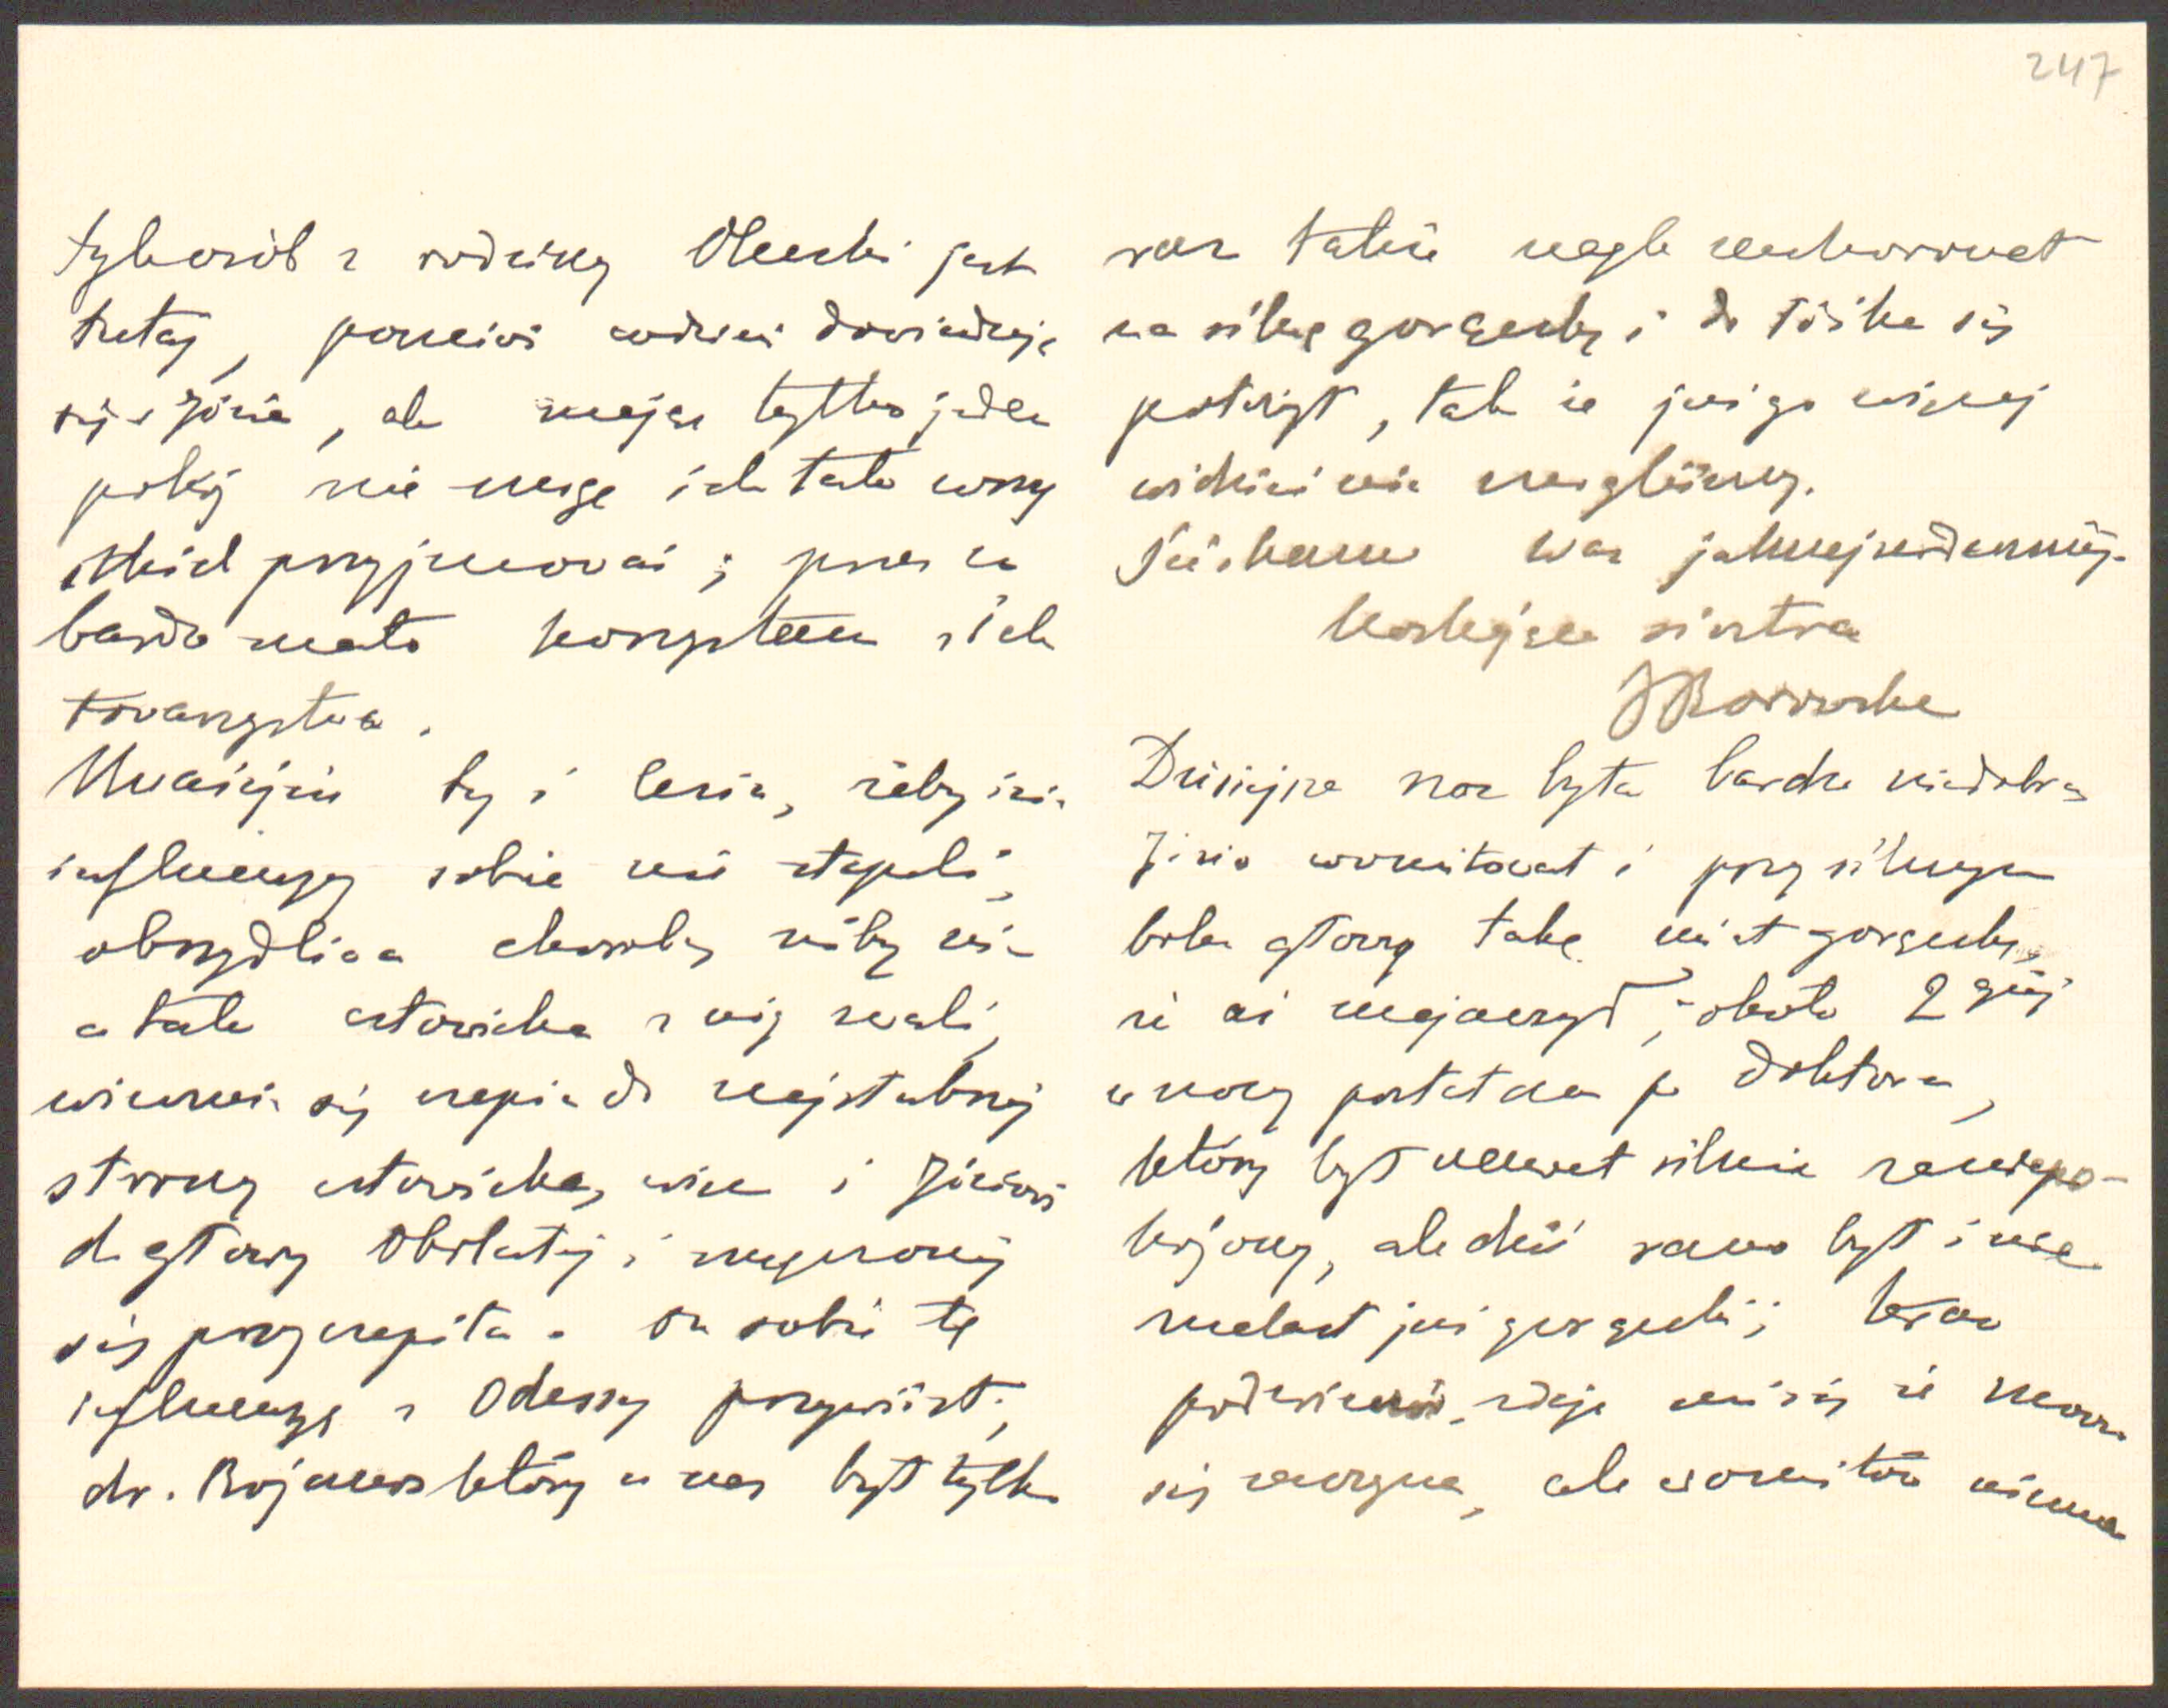 247
tyle osób z rodziny Olenki jest
tutaj, poczciwi codzień dowiadują
się o Józia, ale mając tylko jeden
pokój nie mogę ich tak wszy
stkich przyjmować; przez co
bardzo mało korzystam z ich
towarzystwa.
Uważajcie ty i Lesia, żeby się
influenzy sobie nie złapali,
obrzydliwa choroba niby nic
a tak człowieka z nóg zwali,
winna się czepia do najsłabszej
strony człowieka, więc i Józiowi
do głowy obolałej i zmęczonej
się przyczepiła. On sobie tę
influenzę z Odessy przywiózł;
dr. który u nas był tylko
raz także nagle zachorował
na silną gorączkę i do łóżka się
położył, tak że już go więcej
widzieć nie mogliśmy.
Ściskam Was jaknajserdeczniej
kochająca siostra
Dzisiejsza noc była bardzo niedobra
Józio womitował i przy silnym
bólu głowy taką miał gorączkę,
że aż majaczył; około 2giej
w nocy posłałam po doktora,
który był nawet silnie zaniepo-
kojony, ale dziś rano był i nie
znalazł już gorączki; krew
zdaje mi się że znowu
się zaczyna, ale womitów niema